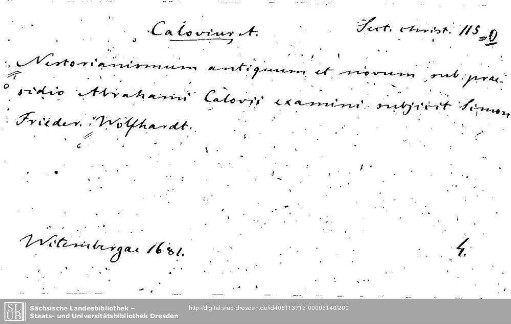 Calovius A. Sect. christ. 113 = 0
Nestorianismum antiquum et novum sub prae
sidio Abrahami Calovii examini subjicit Simon
Frieder. Wolfhardt.
Witembergae 1681. 4.
Sächsische Landesbibliothek –
Staats- und Universitätsbibliothek Dresden